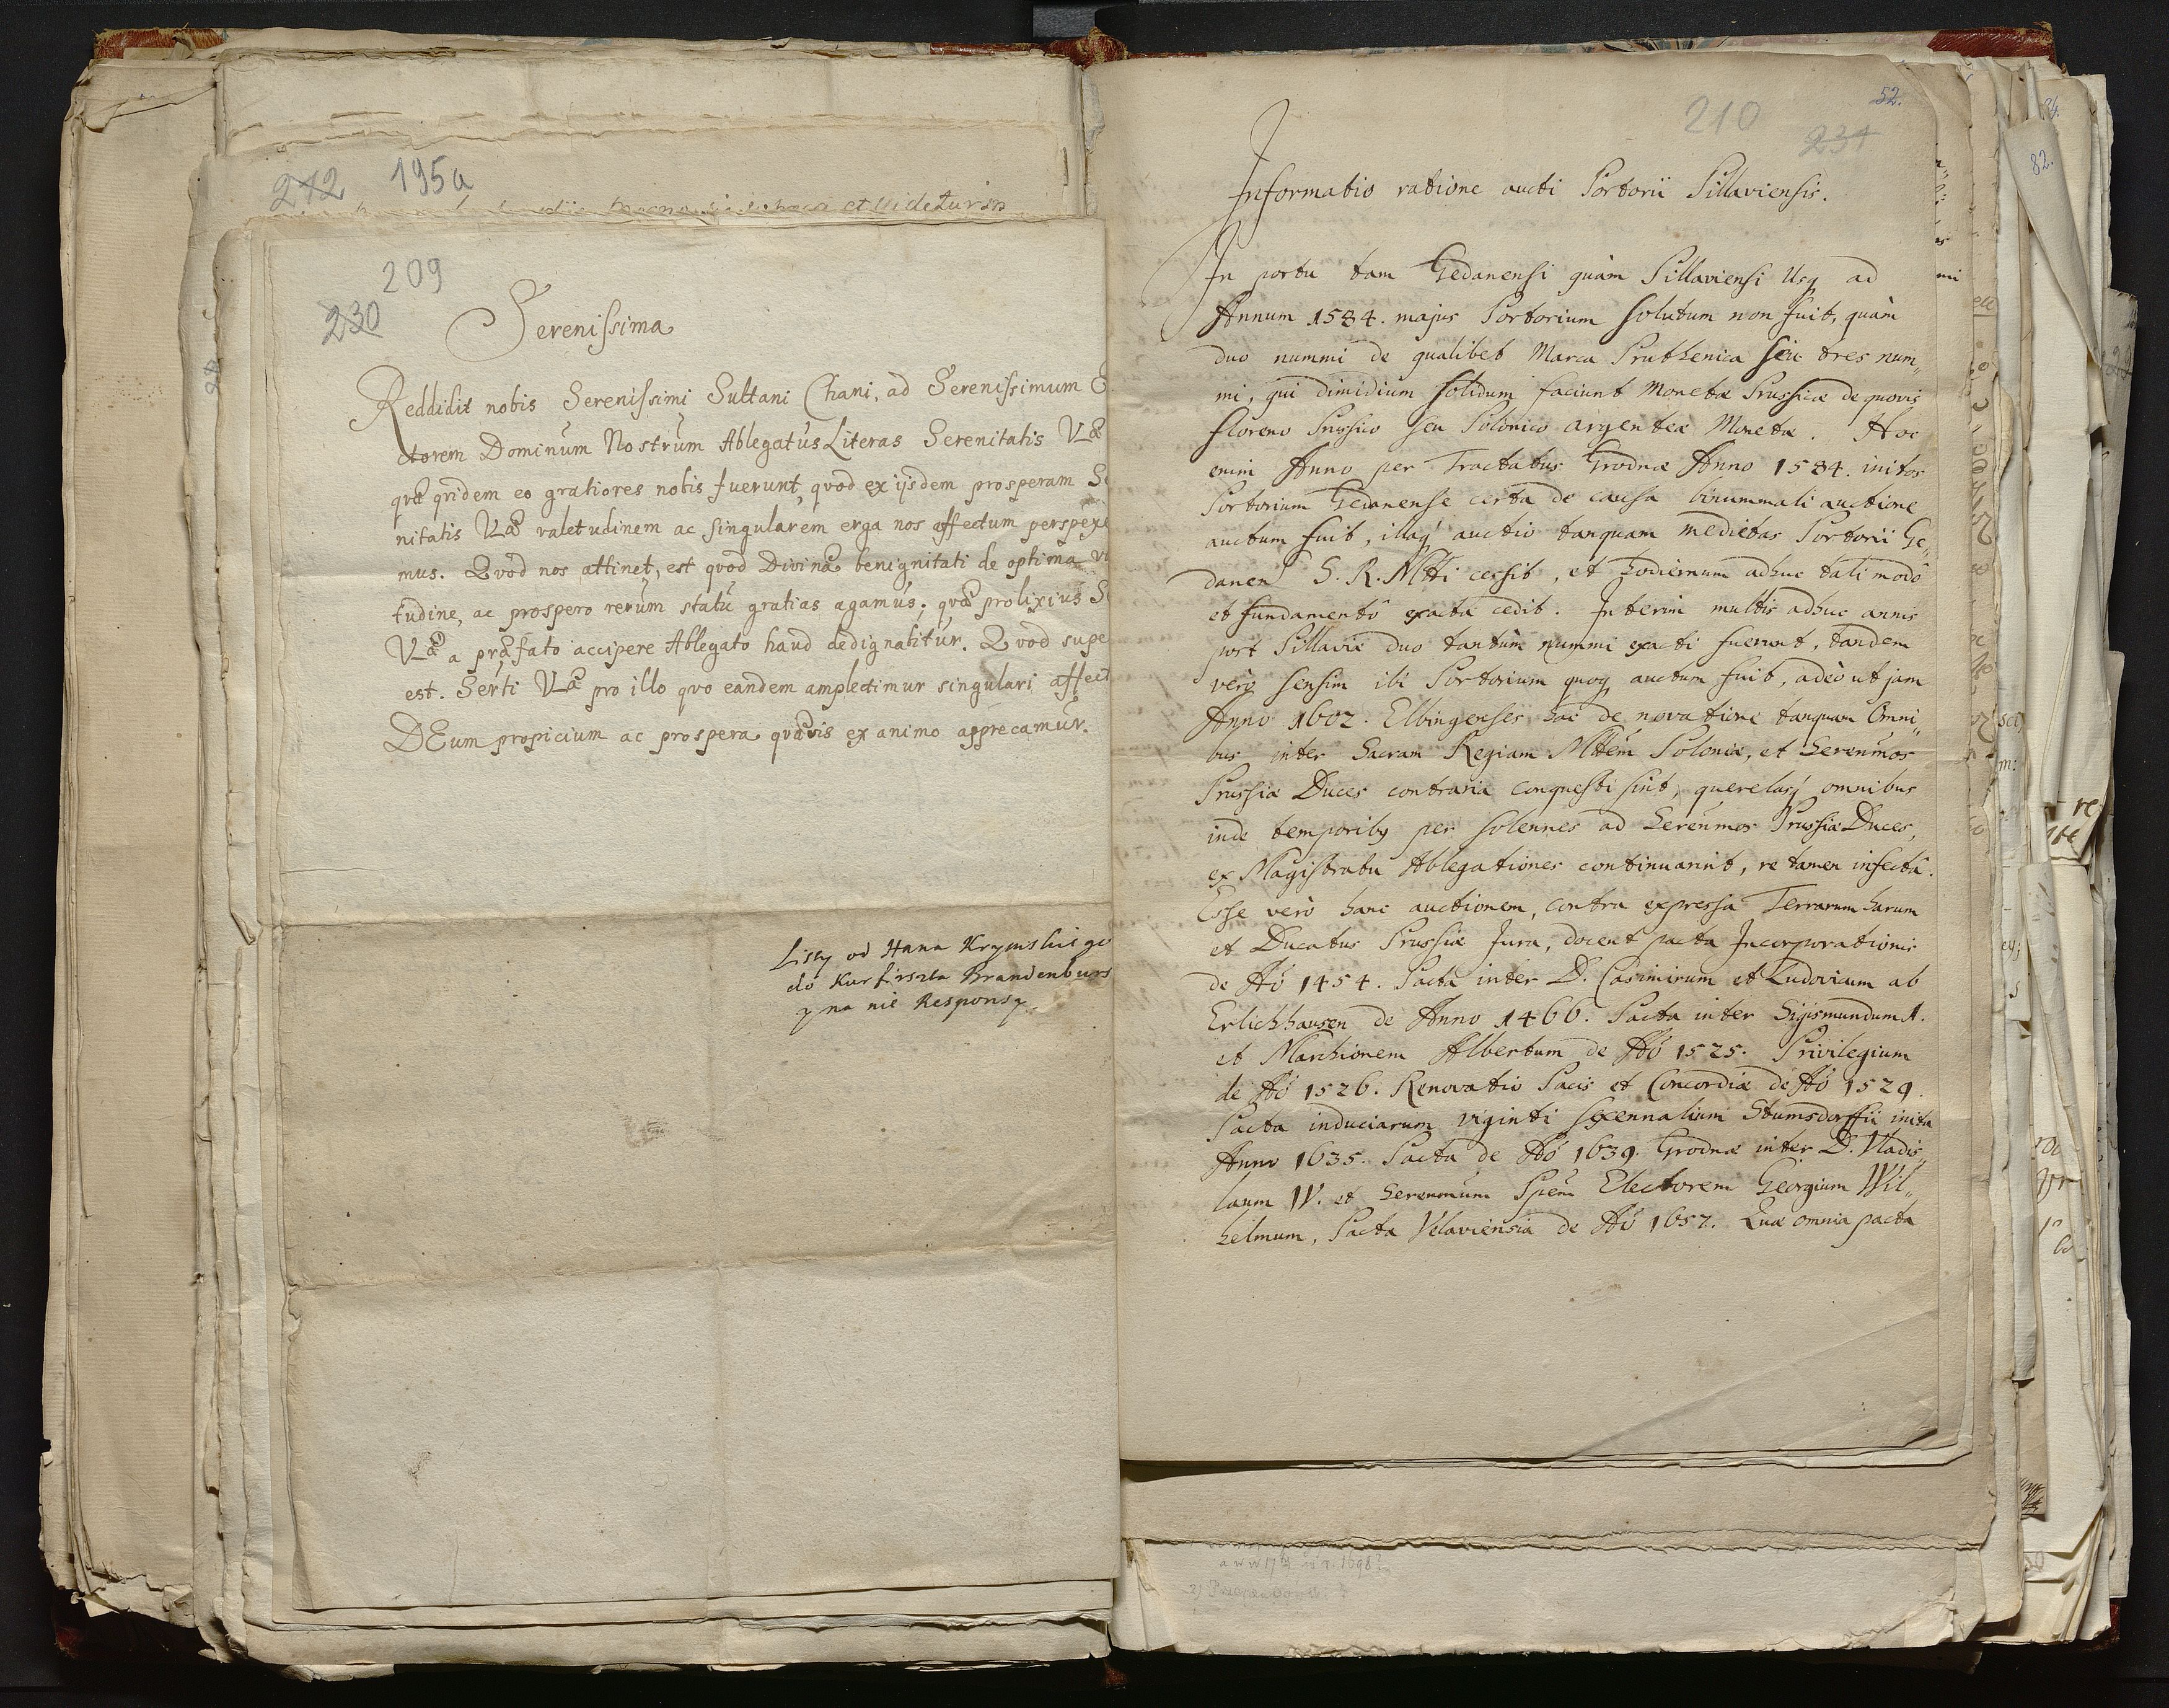 212 195a
et videtur in
209
230
Serenissima
Reddidit nobis Serenissimi Sultani Chani, ad Serenissimum E
ctorem Dominum Nostrum Ablegatus Literas Serenitatis Væ
qvæ qvidem eo gratiores nobis fuerunt, qvod ex ijsdem prosperam Se
nitatis Væ valetudinem ac singularem erga nos affectum perspexe
mus. Qvod nos attinet, est qvod Divinæ benignitati de optima v
tudine, ac prospero rerum statu gratias agamus. qvæ prolixius S
Væ a præfato accipere Ablegato haud dedignabitur. Qvod supe
est. Serti Væ pro illo qvo eandem amplectimur singulari affect
DEum propicium ac prospera qvævis ex animo apprecamur.
Listy od Hana Krymskiego
do Kurfirszta Brandenburs
y na nie Responsy
52.
210
231
Informatio ratione aucti Portorii Pillaviensis.
In portu tam Gedanensi quàm Pillaviensi Usq ad
Annum 1584. majus Portorium solutum non fuit, quàm
duo nummi de qualibet Marca Pruthenica seu tres num„
mi, qui dimidium solidum faciunt Monetæ Prussicæ de quovis
floreno Prussico seu Polonico argenteæ Monetæ. Hoc
enim Anno per Tractatus Grodnæ Anno 1584. initos
Portorium Gedanense certa de causa binummali auctione
auctum fuit, illaq auctio tanquam medietas Portorii Ge„
danen S. R. Mtti cessit, et hodiernum adhuc tali modô
et fundamentô exacta cedit. Interim multis adhuc annis
post Pillaviæ duo tantùm nummi exacti fuerunt, tandem
verò sensim ibi Portorium quoq auctum fuit, adeò ut jam
Anno 1602. Elbingenses hac de novatione tanquam Omni„
bus inter Sacram Regiam Mttem Poloniæ, et Serenmos
Prussiæ Duces contraria conquesti sint, querelasq omnibus
inde temporibq per solennes ad Serenmos Prussiæ Duces,
ex Magistratu Ablegationes continuarint, re tamen infectâ.
Esse verò hanc auctionem, contra expressa Terrarum harum
et Ducatus Prussiæ Jura, docent pacta Incorporationis
de Aô 1454. Pacta inter D. Casimirum et Ludovicum ab
Erlichhausen de Anno 1466. Pacta inter Sigismundum 1.
et Marchionem Albertum de Aô 1525. Privilegium
de Aô 1526. Renovatio Pacis et Concordiæ de Aô 1529.
Pacta induciarum viginti sexennalium Stumsdorffii inita
Anno 1635. Pacta de Aô 1639. Grodnæ inter D. Vladis„
laum IV. et Serenmum Ppem Electorem Georgium Wil„
helmum, Pacta Velaviensia de Aô 1657. Quæ omnia pacta
82.